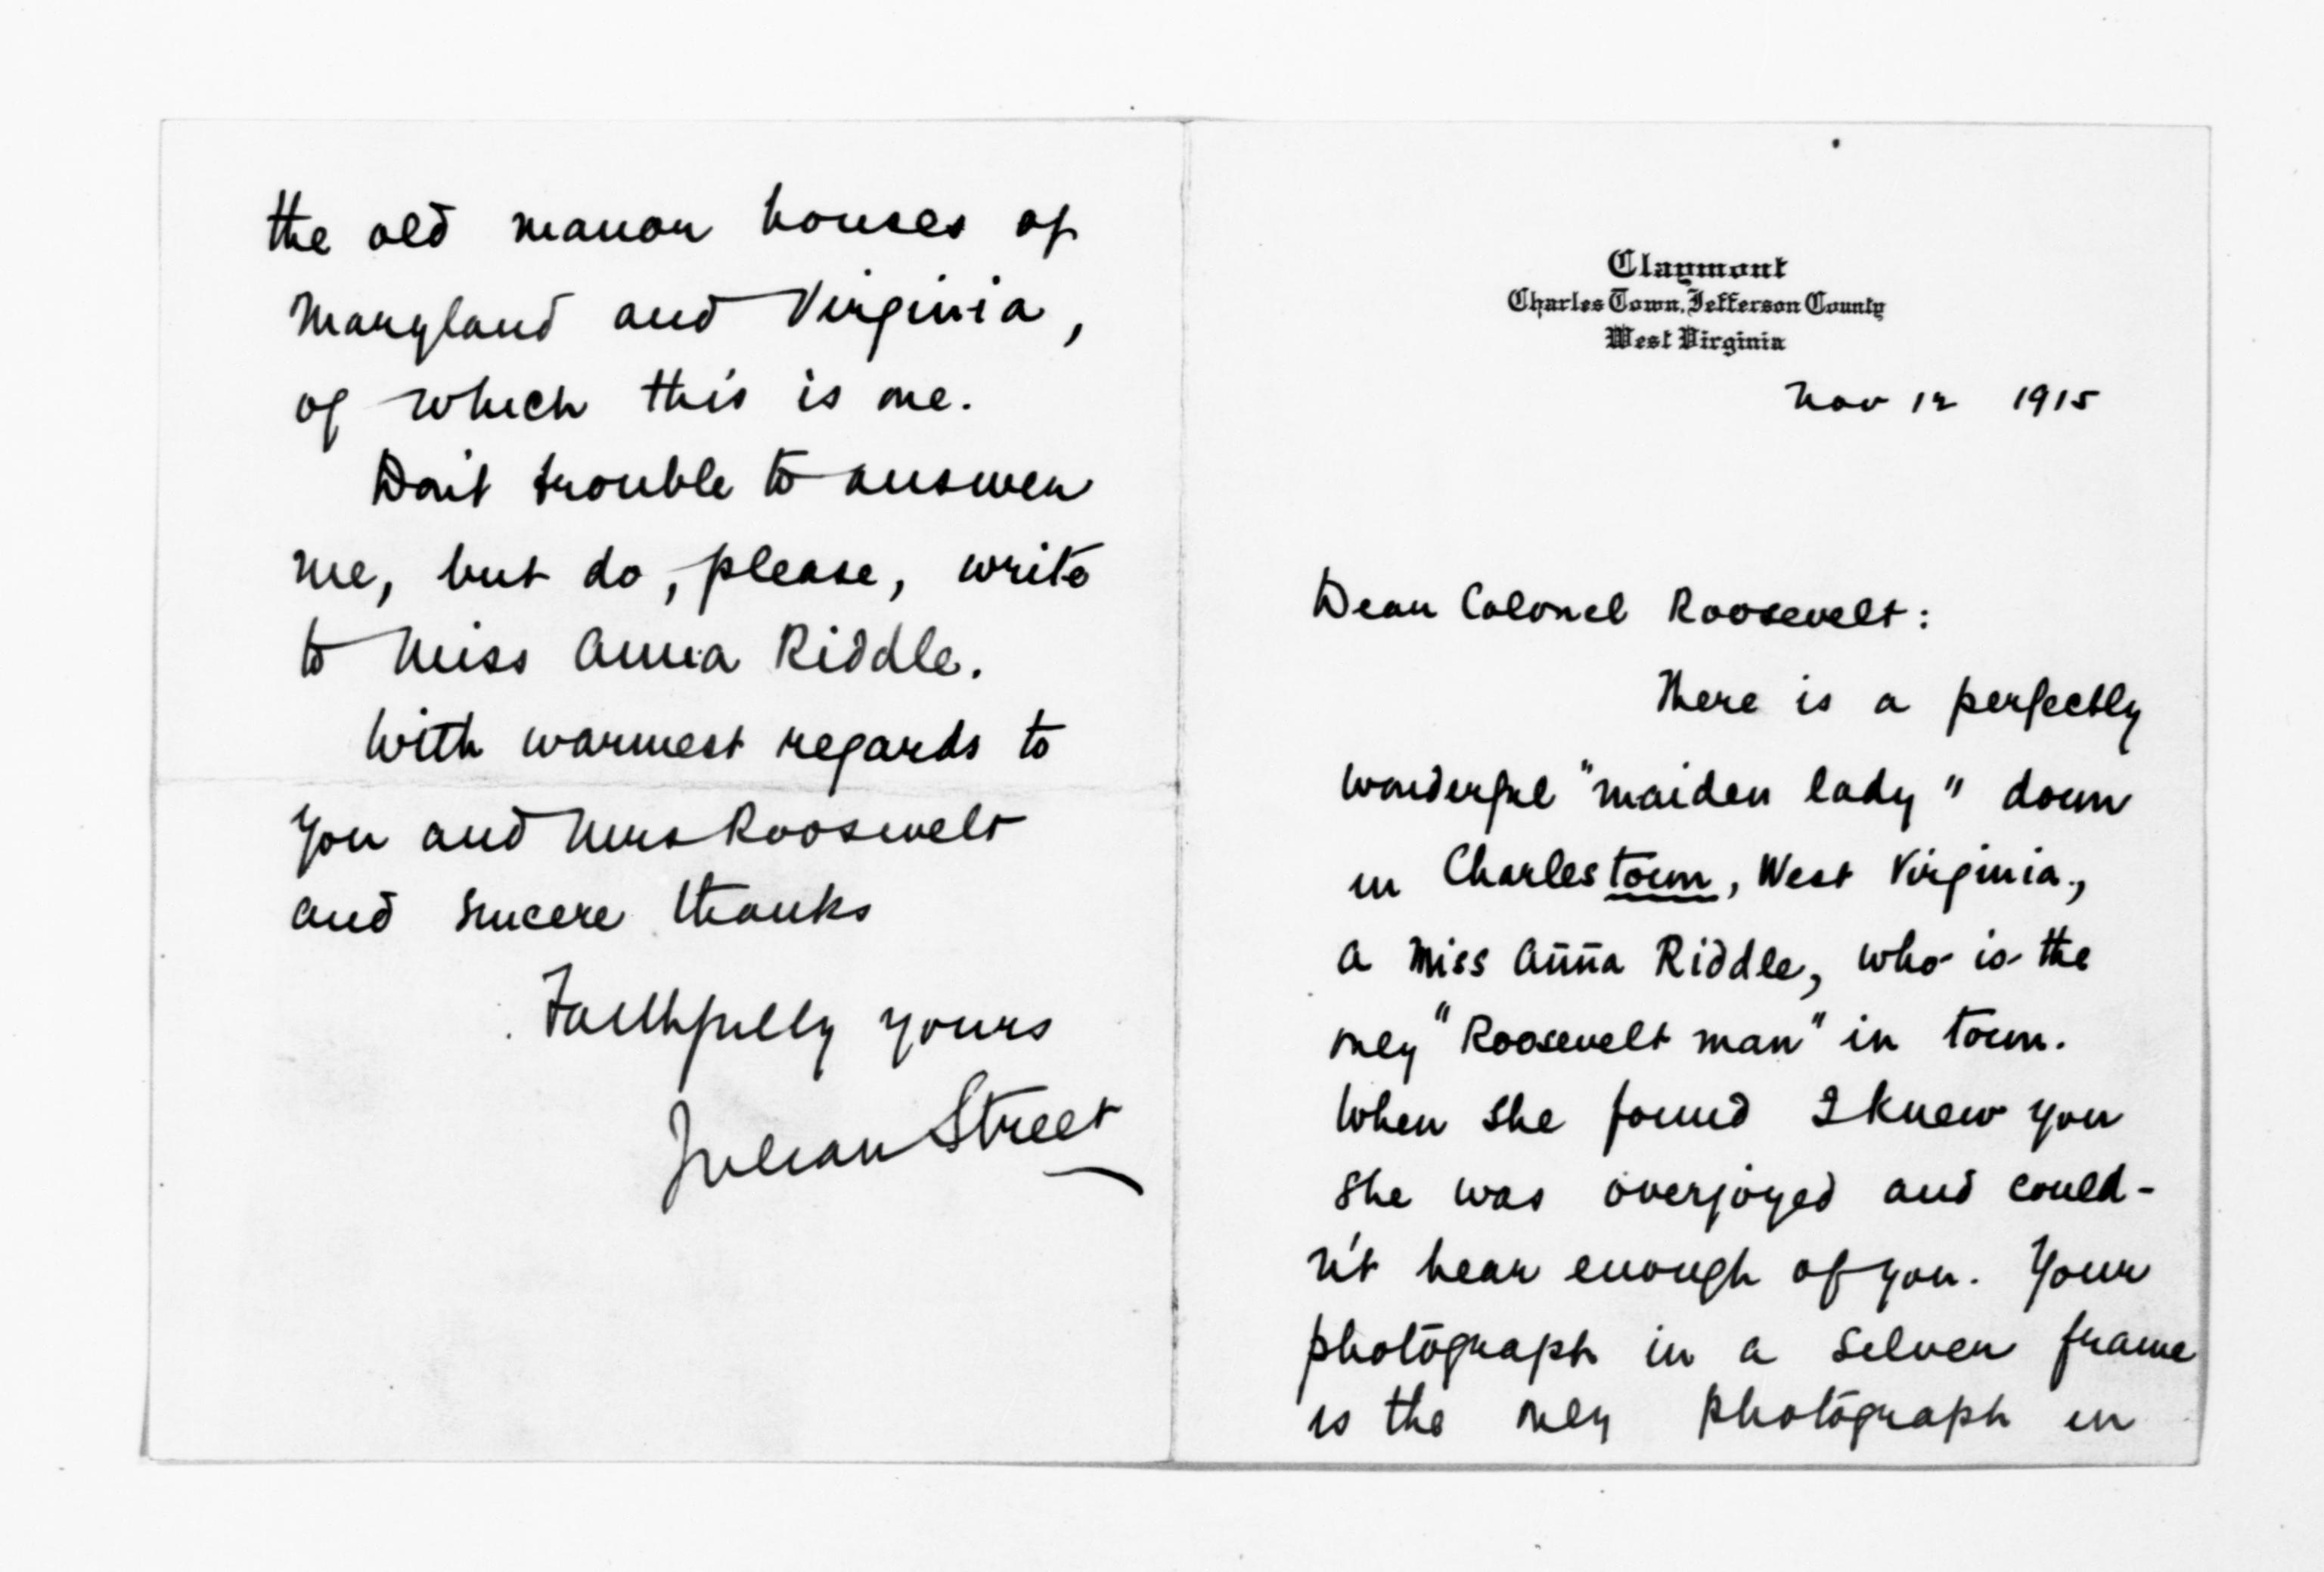 the old manor houses of
Maryland and Virginia,
of which this is one.
Don't trouble to answer
me, but do, please, write
to Miss Anna Riddle.
With warmest regards to
you and Mrs Roosevelt
and sincere thanks
Faithfully yours
Julian Street
Claymont
Charles Town, Jefferson County
West Virginia
Nov 12 1915
Dear Colonel Roosevelt:
There is a perfectly
wonderful "maiden lady" down
in Charlestown, West Virginia,
a Miss Anna Riddle, who is the
only "Roosevelt man" in town.
When she found I knew you
she was overjoyed and could-
n't hear enough of you. Your
photograph in a silver frame
is the only photograph in